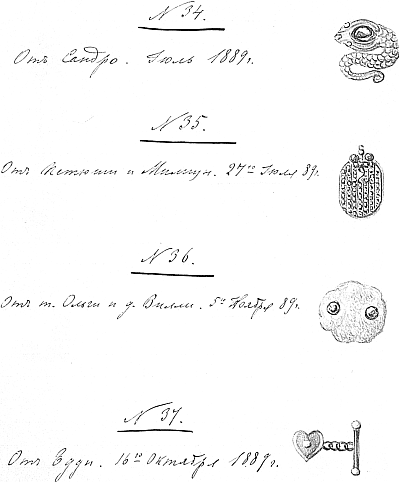 N 34.
Отъ Сандро. Іюль 1889г.
N 35.
Отъ Ксеніи и Мишкин. 27го Іюля 89г.
N 36.
Отъ т. Ольги и д. Вилли. 5го Ноября 89г.
N 37.
Отъ Эдди. 16го Октября 1889г.